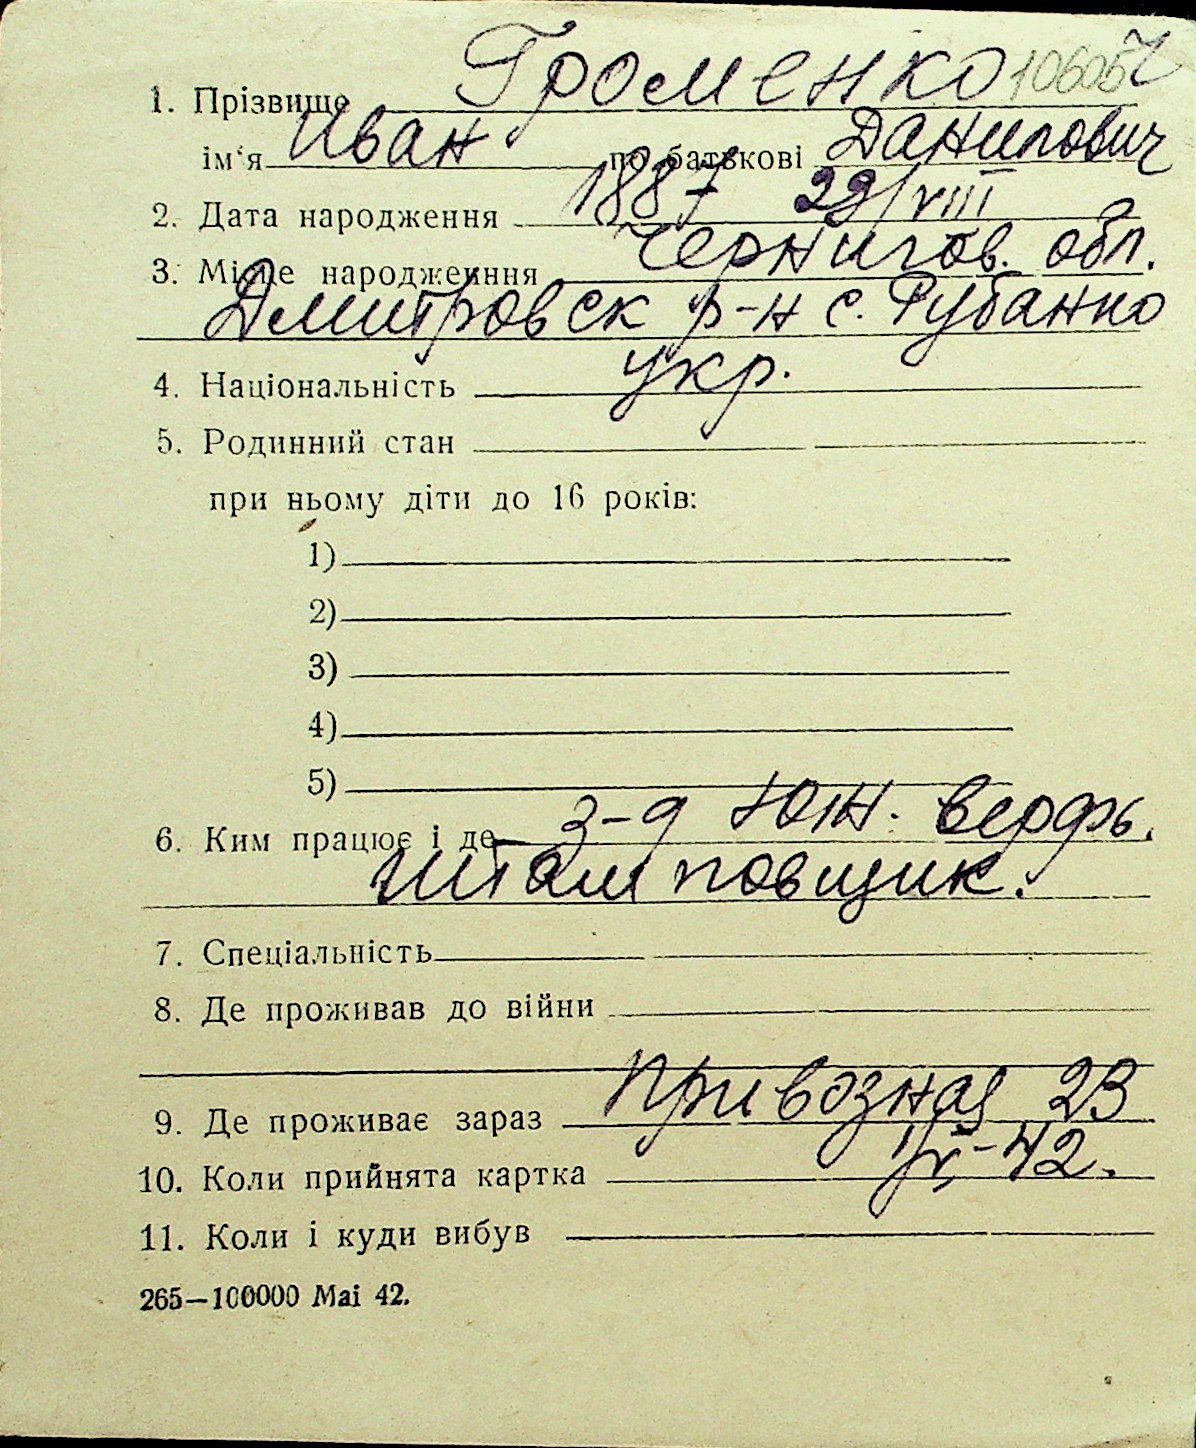 1. Прізвище Громенко 10605
ім'я Иван по батькові Данилович
2. Дата народження 1887 29/VIII
3. Місце народженння Чернигов. обл.
Дмитровск р-н с. Рубанко
4. Національність укр.
5. Родинний стан
при ньому діти до 16 років:
1)
2)
3)
4)
5)
6. Ким працює і де з-д Юж. верфь.
штамповщик.
7. Спеціальність
8. Де проживав до війни
9. Де проживає зараз Привозная 23
10. Коли прийнята картка 42.
11. Коли і куди вибув
265—100000 Mai 42.